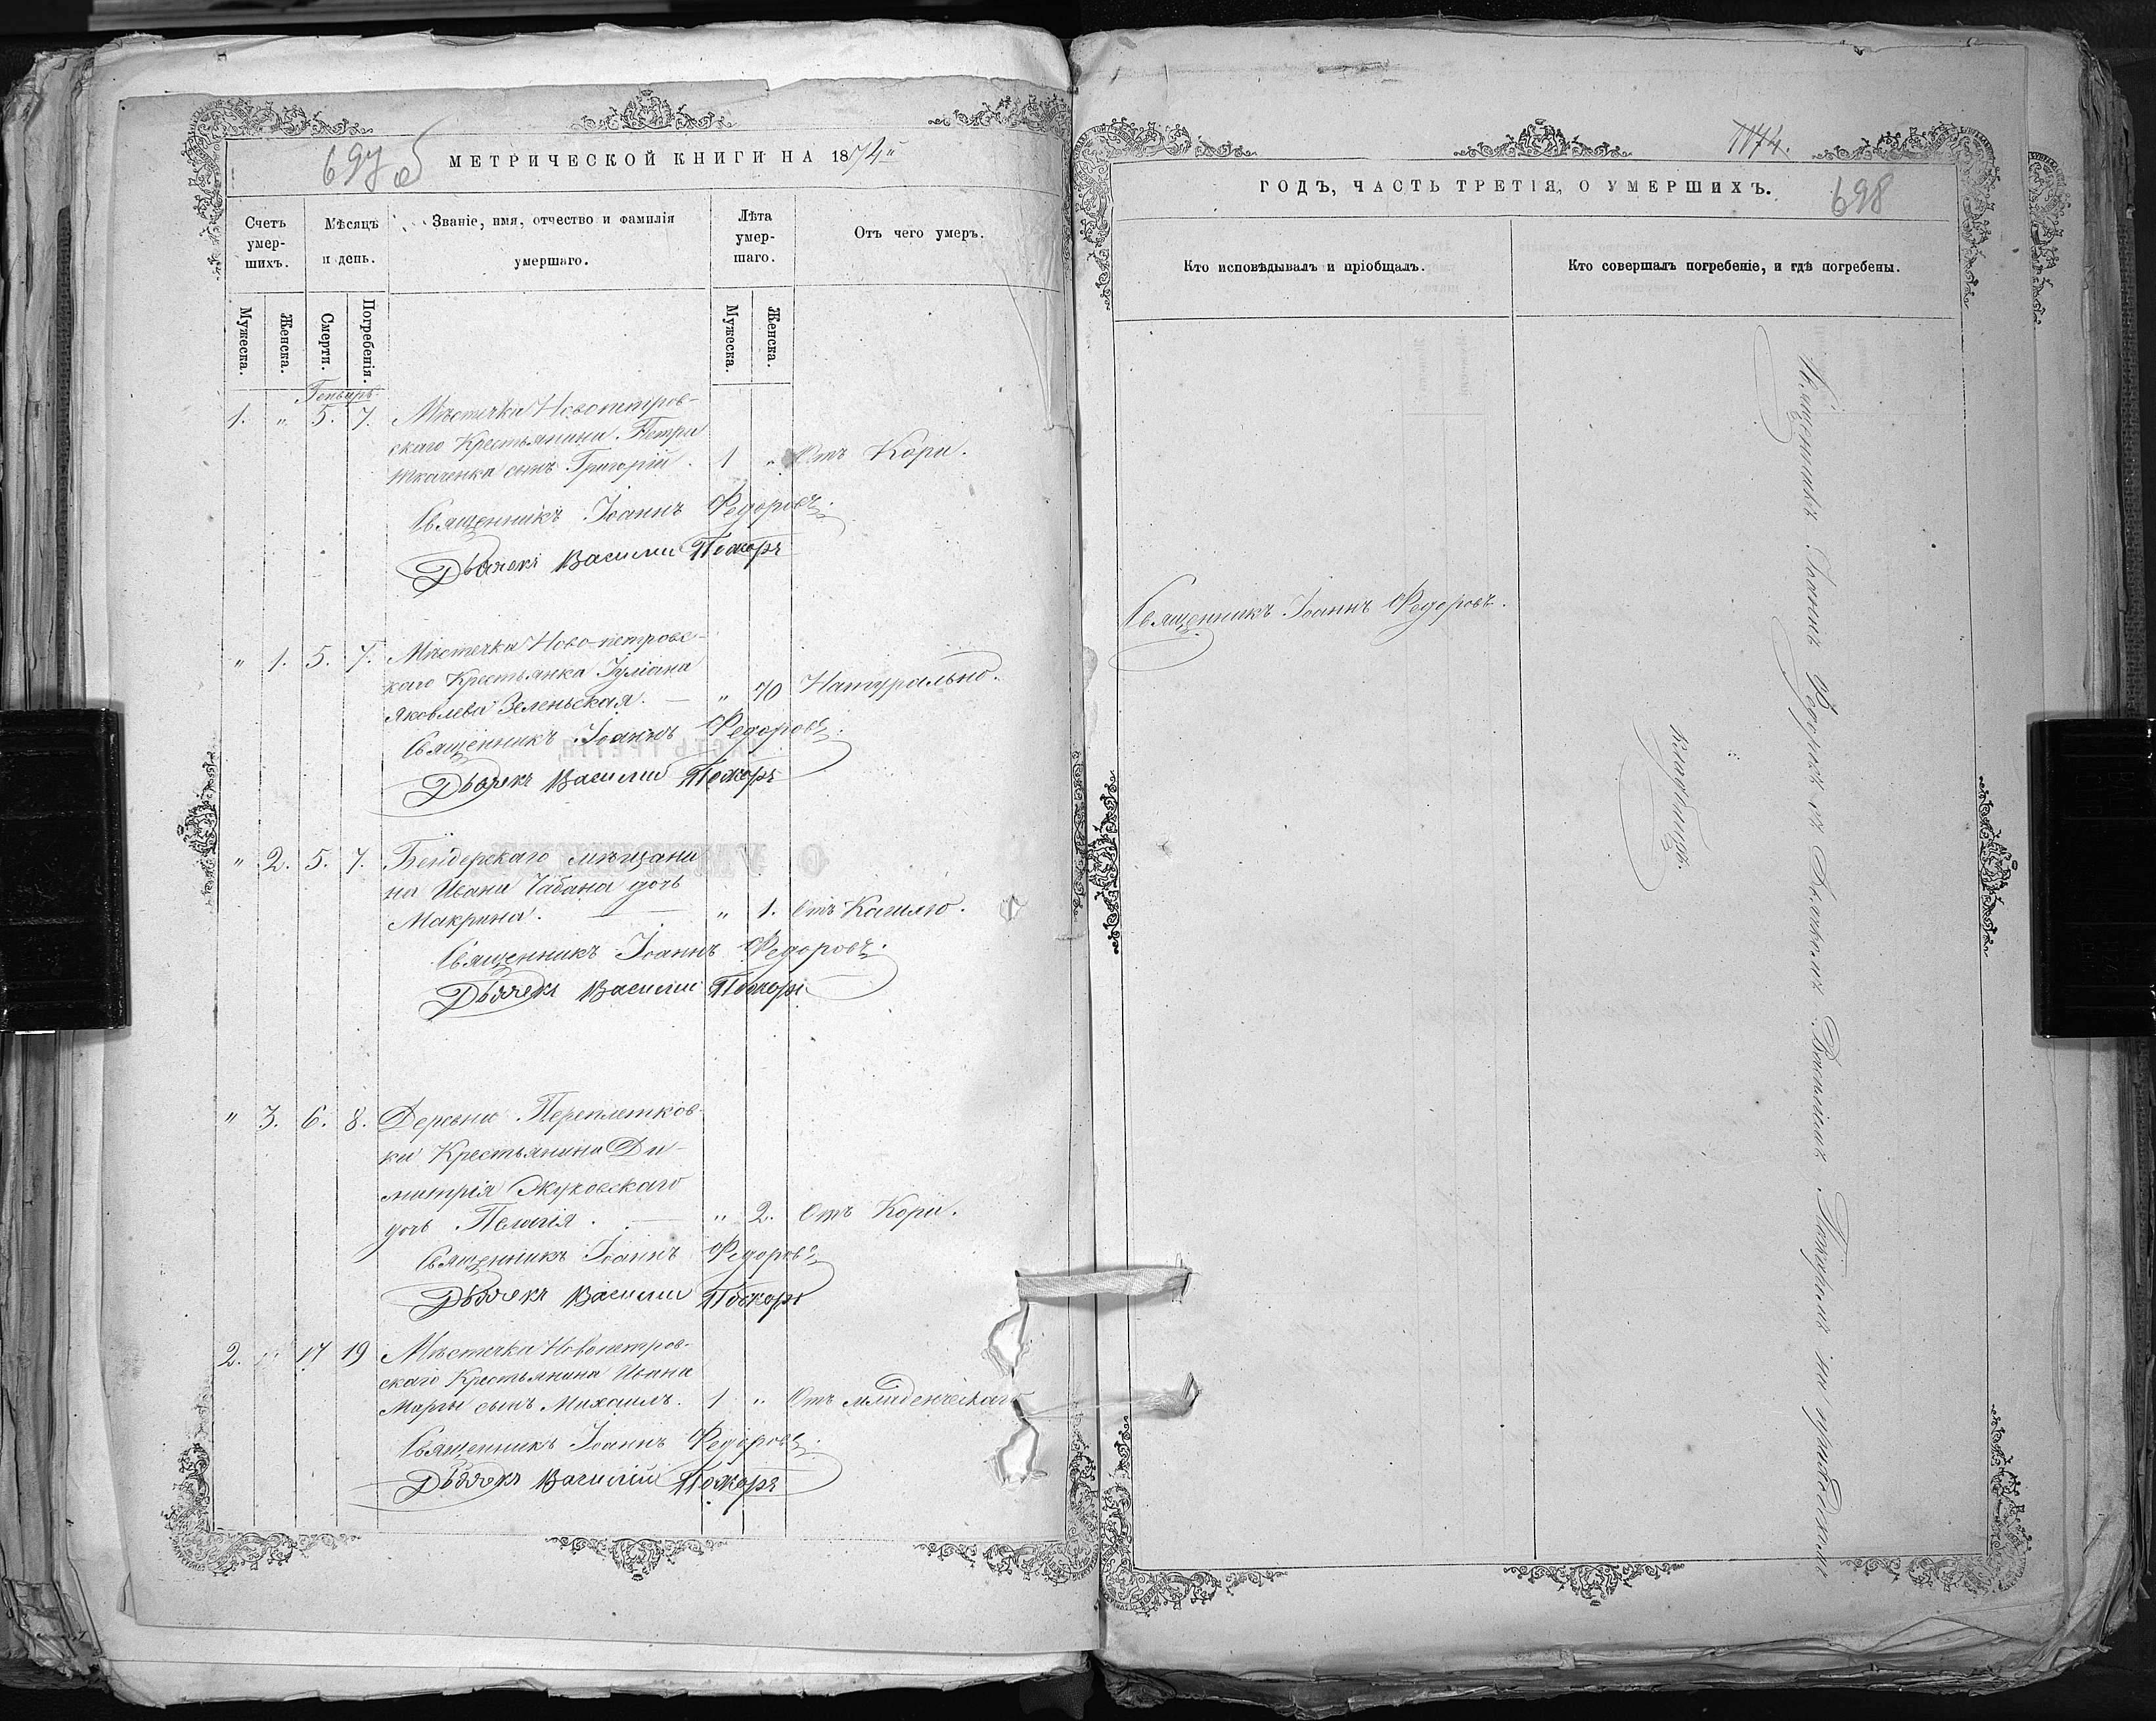 697 об
МЕТРИЧЕСКОЙ КНИГИ НА 1874
Счетъ умер-шихъ.
Мѣсяцъ и день.
Званіе, имя, отчество и фамилія умершаго.
Лѣта умер-шаго.
Отъ чего умеръ.
Мужеска.
Женска.
Смерти.
Погребенія.
Мужеска.
Женска.
Генварь
1. " 5. 7. Мѣстечка Новопетров-
скаго Крестьянина Петра
Ткаченка сынъ Григорій. 1 " Отъ Кори.
Священникъ Іоаннъ Федоровъ.
Дьячекъ Василій
" 1. 5. 7. Мѣстечка Ново-петровс-
каго Крестьянка Іуліана
Яковлева Зеленьская. — " 70 Натурально.
Священникъ Іоаннъ Федоровъ.
Дьячекъ Василій
" 2. 5. 7. Бендерскаго мѣщани-
на Ивана Чабана дочь
Макрина. — " 1. Отъ Кашлю.
Священникъ Іоаннъ Федоровъ.
Дьячекъ Василій
" 3. 6. 8. Деревни Переплетков-
ки Крестьянина Ди-
митрія Жуковскаго
дочь Пелагія. — " 2. Отъ Кори.
Священникъ Іоаннъ Федоровъ.
Дьячекъ Василій
2. " 17 19 Мѣстечка Новопетров-
скаго Крестьянина Ивана
сынъ Михаилъ. 1 " Отъ младенческаго
Священникъ Іоаннъ Федоровъ.
Дьячекъ Василій
1174.
ГОДЪ, ЧАСТЬ ТРЕТІЯ, О УМЕРШИХЪ.
698
Кто исповѣдывалъ и пріобщалъ.
Кто совершалъ погребеніе, и гдѣ погребены.
Священникъ Іоаннъ Федоровъ.
Священникъ Іоаннъ Федоровъ съ Дьячкомъ Василіемъ на приходскомъ
кладбищѣ.